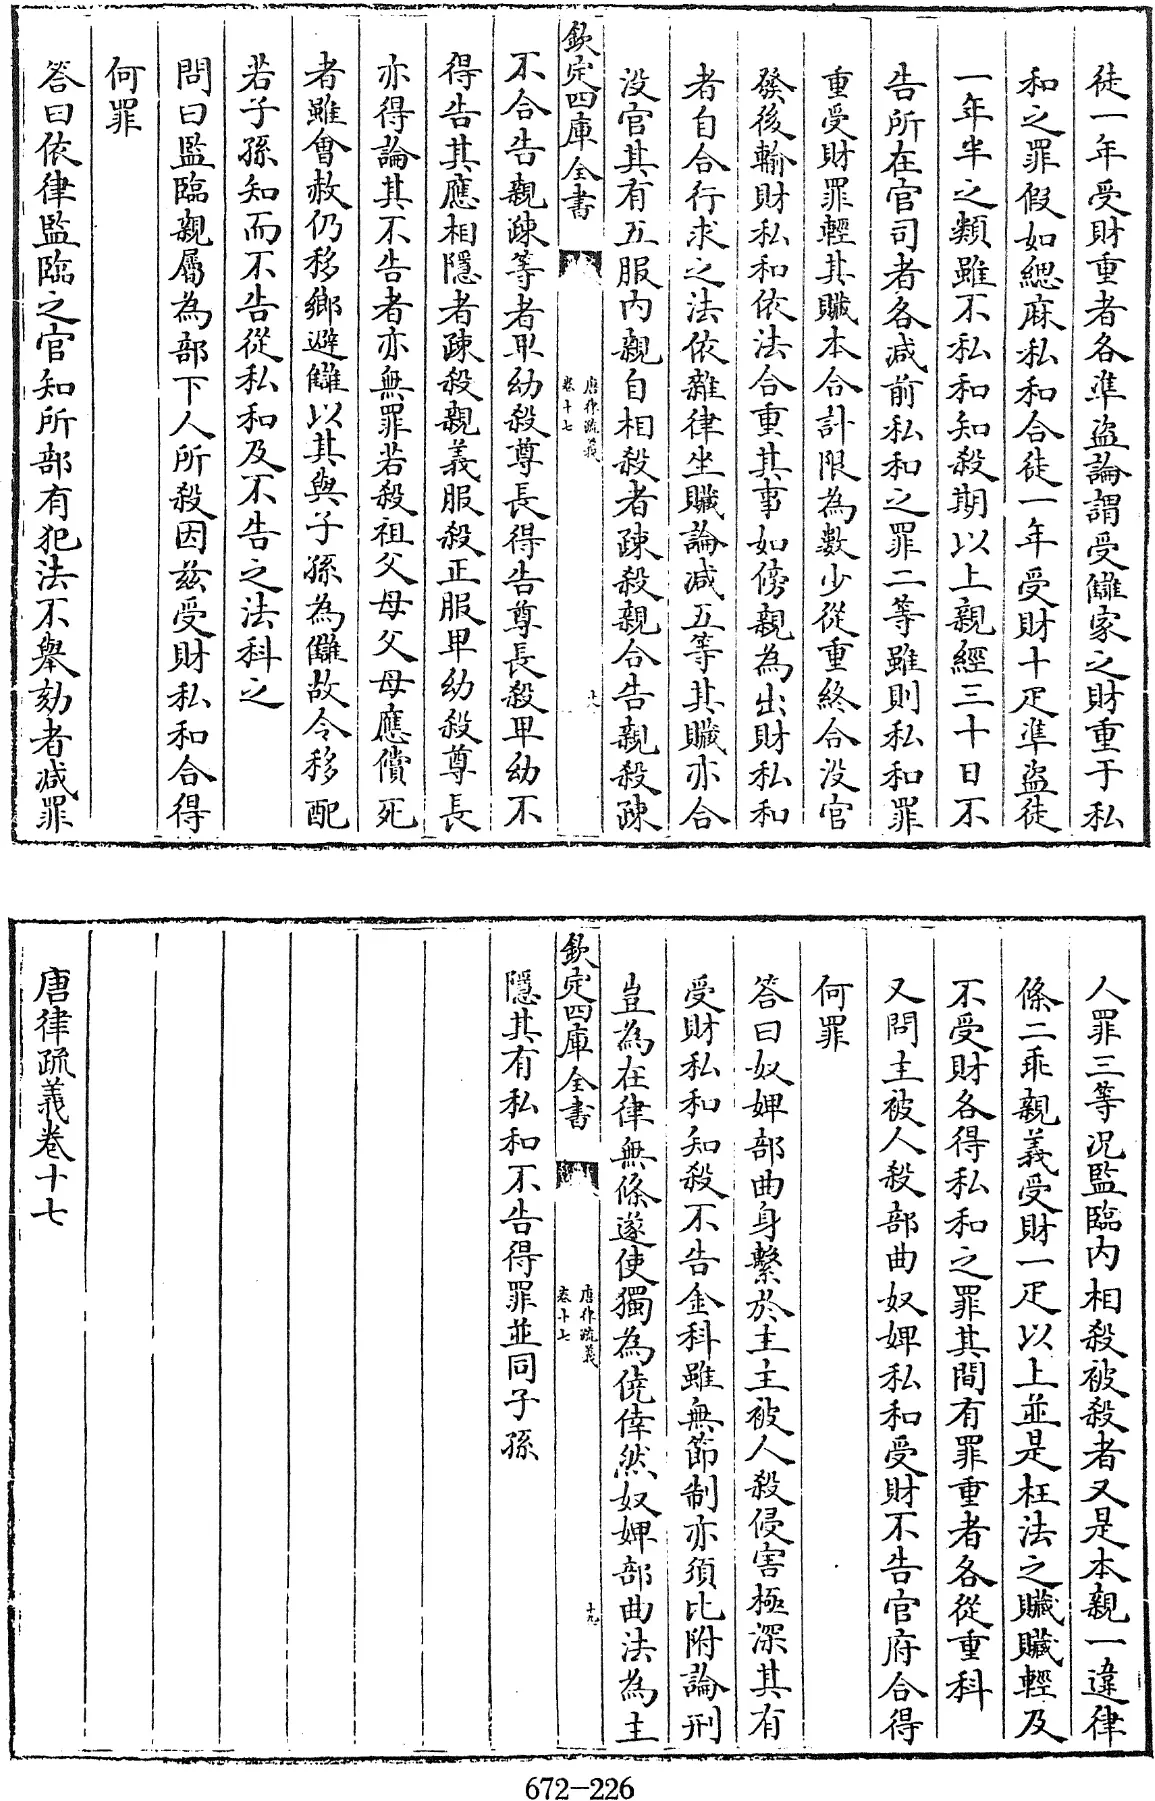 徒一年受財重者各準盜論謂受讎家之財重于私
和之罪假如緦麻私和合徒一年受財十疋準盜徒
一年半之類雖不私和知殺期以上親經三十日不
告所在官司者各減前私和之罪二等雖則私和罪
重受財罪輕其贓本合計限為數少從重終合没官
發後輸財私和依法合重其事如傍親為出財私和
者自合行求之法依雜律坐贓論減五等其贓亦合
没官其有五服内親自相殺者疎殺親合告親殺疎
欽定四庫全書
唐律疏義
卷十七
大
不合告親疎等者卑幼殺尊長得告尊長殺卑幼不
得告其應相隱者疎殺親義服殺正服卑幼殺尊長
亦得論其不告者亦無罪若殺祖父母父母應償死
者雖會赦仍移鄉避讎以其與子孫為讎故令移配
若子孫知而不告從私和及不告之法科之
問曰監臨親屬為部下人所殺因兹受財私和合得
何罪
答曰依律監臨之官知所部有犯法不舉劾者減罪
人罪三等况監臨内相殺被殺者又是本親一違律
條二乖親義受財一疋以上並是枉法之贓贓輕及
不受財各得私和之罪其間有罪重者各從重科
又問主被人殺部曲奴婢私和受財不告官府合得
何罪
答曰奴婢部曲身繫於主主被人殺侵害極深其有
受財私和知殺不告金科雖無節制亦須比附論刑
豈為在律無條遂使獨為僥倖然奴婢部曲法為主
欽定四庫全書
唐律疏義
卷十七
十九
隱其有私和不告得罪並同子孫
唐律疏義卷十七
672-226